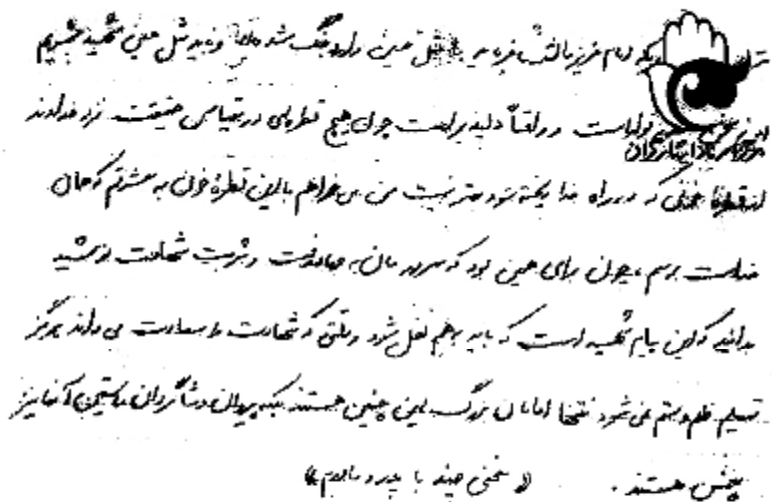 امام عزیزمان فرماید مثل حسین وارد جنگ شد و باید مثل حسین شهید شویم
این زیباست و واقعاً دلپذیر است چون هیچ قطره‌ای در مقیاس حقیقت نزد خداوند
از قطره خونی که در راه خدا ریخته شود بهتر نیست من می‌خواهم با این قطرهٔ خون به عشقم که همان
خداست برسم، چون برای حسین بود که سرور مان به جا و شربت شهادت نوشید
بدانید که این پیام شهید است که باید بهم نقل شود و ملتی که شهادت را سعادت می‌داند هرگز
تسلیم ظلم و ستم نمی‌شود تنها امامان بزرگ این چنین هستند بلکه پیروان و شاگردان راستین آنها نیز
چنین هستند. «سخنی چند با پدر و مادرم»